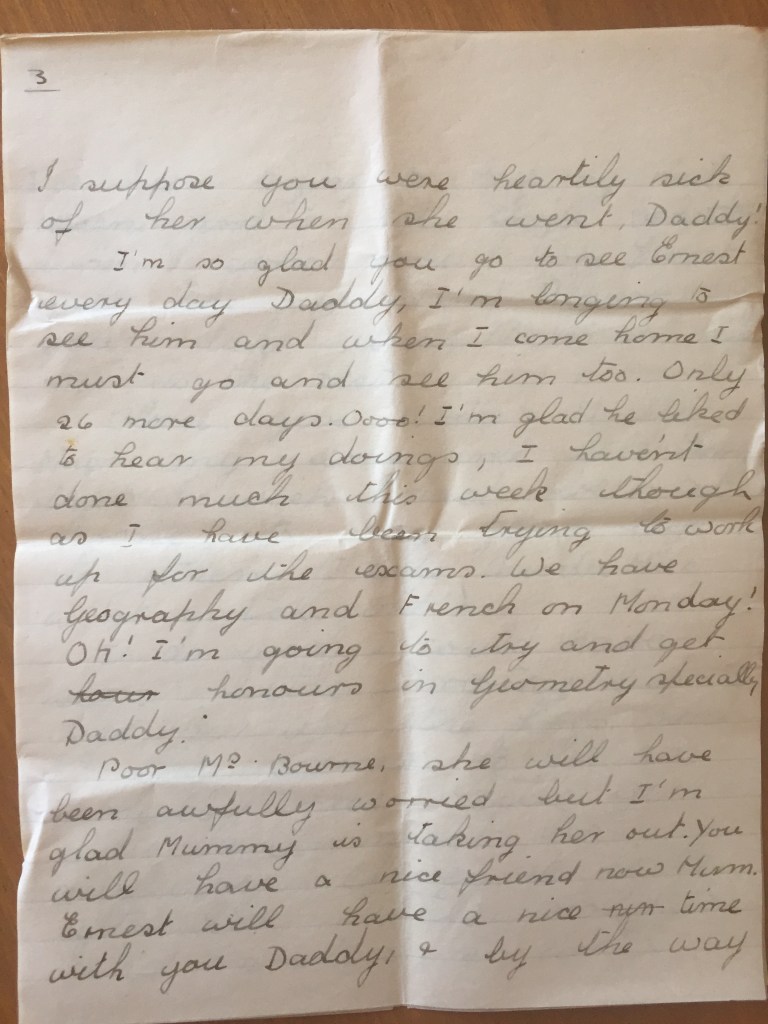 3
I suppose you were heartily sick
of her when she went, Daddy!
I'm so glad you go to see Ernest
every day Daddy, I'm longing to
see him and when I come home I
must go and see him too. Only
26 more days. Oooo! I'm glad he liked
to hear my doings, I haven't
done much this week though
as I have been trying to work
up for the exams. We have
Geography and French on Monday!
Oh! I'm going to try and get
hour honours in Geometry specially
Daddy.
Poor Mrs. Bourne, she will have
been awfully worried but I'm
glad Mummy is taking her out. You
will have a nice friend now Mum.
Ernest will have a nice time
with you Daddy, & by the way